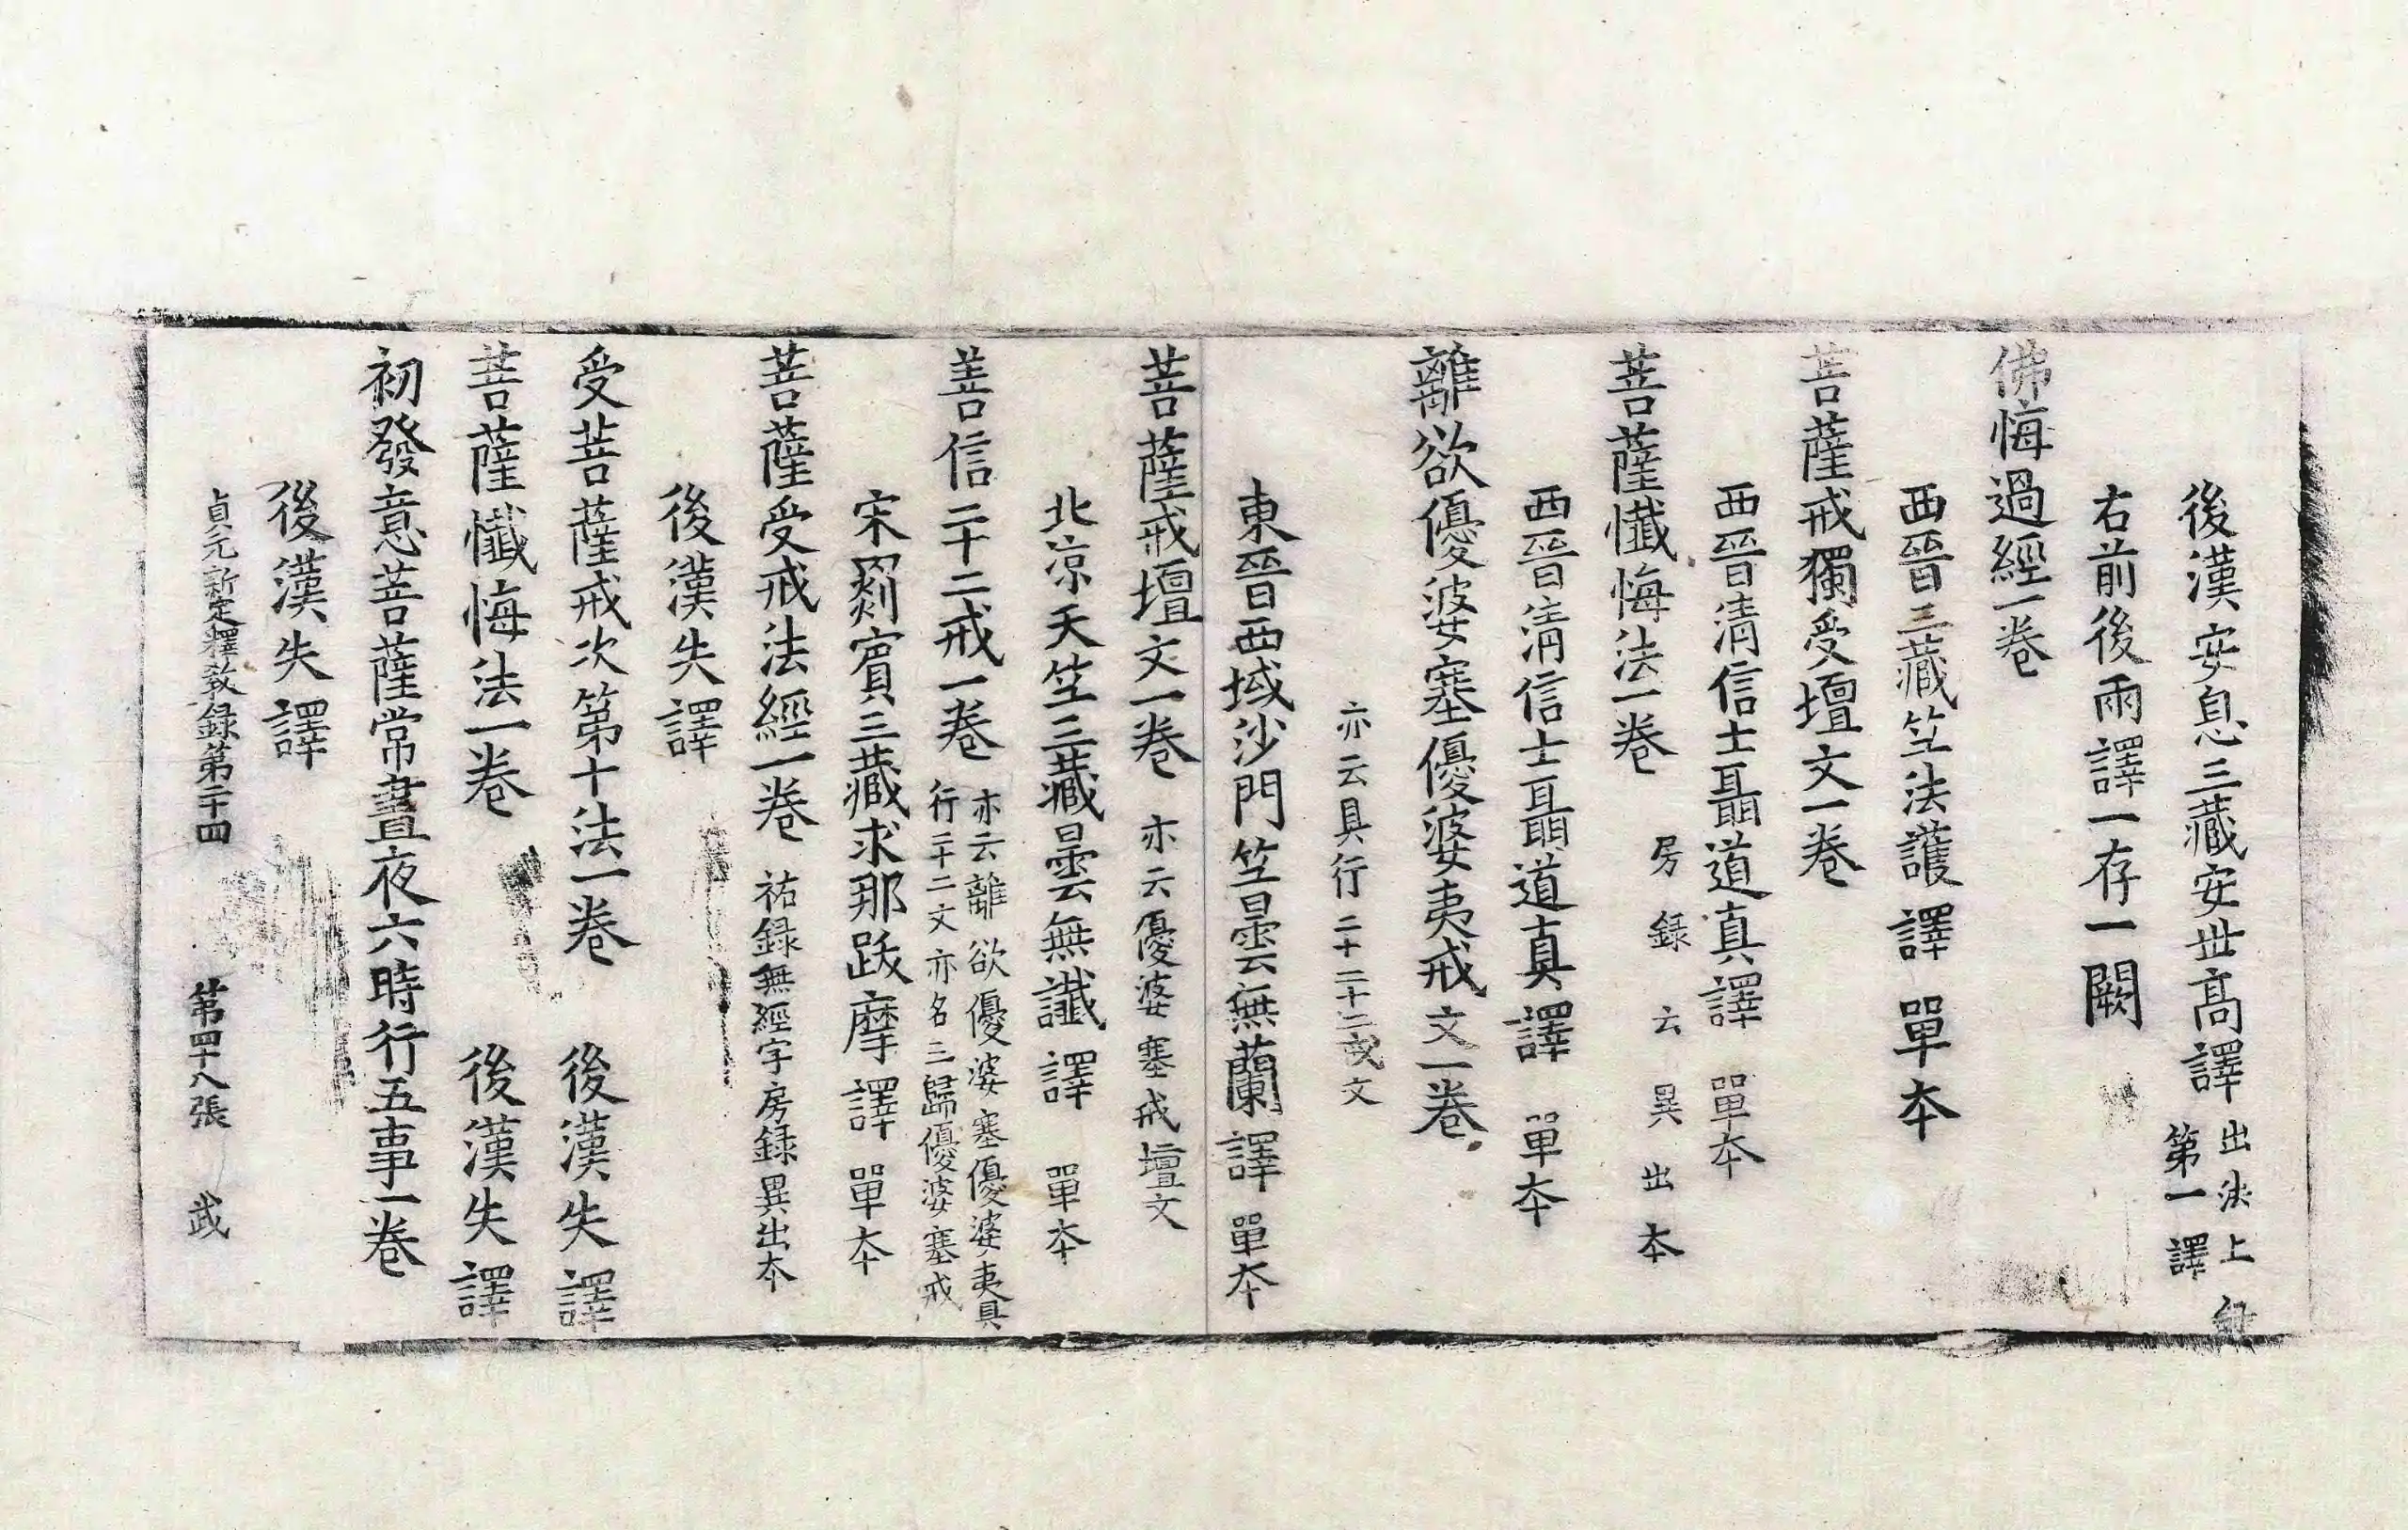 後漢安息三藏安世高譯 出法上錄 第一譯
右前後兩譯一存一闕
佛悔過經一卷
西晉三藏竺法護譯 單本
菩薩戒獨受壇文一卷
西晉清信士聶道真譯 單本
菩薩懺悔法一卷 房錄云異出本
西晉清信士聶道真譯 單本
離欲優婆塞優婆夷戒文一卷
亦云具行二十二戒文
東晉西域沙門竺曇無蘭譯 單本
菩薩戒壇文一卷 亦云優婆塞戒壇文
北涼天竺三藏曇無讖譯 單本
善信二十二戒一卷 亦云離欲優婆塞優婆夷具 行二十二文亦名三歸優婆塞戒
宋罽賓三藏求那跋摩譯 單本
菩薩受戒法經一卷 祐錄無經字房錄異出本
後漢失譯
受菩薩戒次第十法一卷 後漢失譯
菩薩懺悔法一卷 後漢失譯
初發意菩薩常晝夜六時行五事一卷
後漢失譯
貞元新定釋教錄第二十四 第四十八張 武